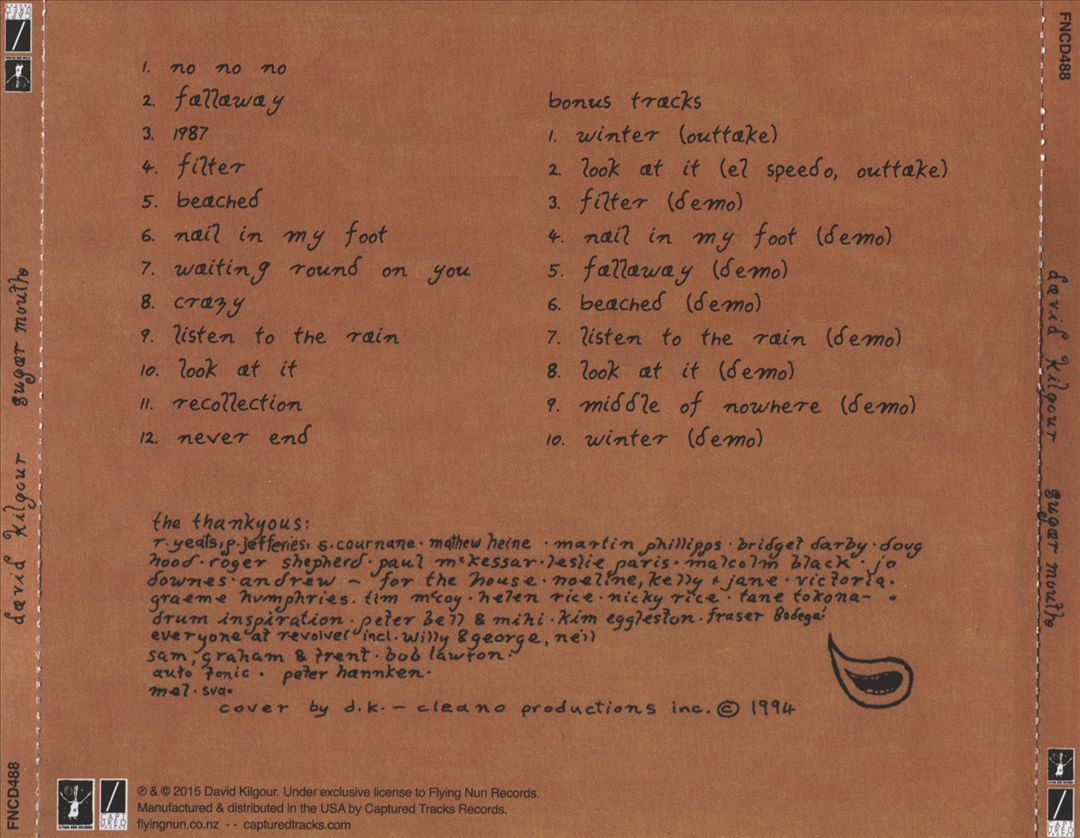 1. no no no
2. fallaway
3. 1987
4. filter
5. beached
6. nail in my foot
7. waiting round on you
8. crazy
9. listen to the rain
10. look at it
11. recollection
12. never end
bonus tracks
1. winter (outtake)
2. look at it (el speedo, outtake)
3. filter (demo)
4. nail in my foot (demo)
5. fallaway (demo)
6. beached (demo)
7. listen to the rain (demo)
8. look at it (demo)
9. middle of nowhere (demo)
10. winter (demo)
the thankyous:
r. yeats, p. jefferies, s. cournane · mathew heine · martin phillipps · bridget darby · doug
hood · roger shepherd · paul mckessar · leslie paris · malcolm black · jo
downes · andrew – for the house · noeline, kelly + jane · victoria ·
graeme humphries. tim mccoy · helen rice · nicky rice · tane tokona– ·
drum inspiration · peter bell & mihi · kim eggleston · fraser Bodega!
everyone at revolver incl. willy & george, neil
sam, graham & trent · bob lawton ·
auto tonic · peter hannken ·
mel · sva ·
cover by d.k. – cleano productions inc. © 1994
℗ & © 2015 David Kilgour. Under exclusive license to Flying Nun Records.
Manufactured & distributed in the USA by Captured Tracks Records.
flyingnun.co.nz -- capturedtracks.com
FLYING NUN RECORDS
CAPT
URED
TRACKS
david kilgour sugar mouth
FNCD488
david kilgour sugar mouth
FNCD488